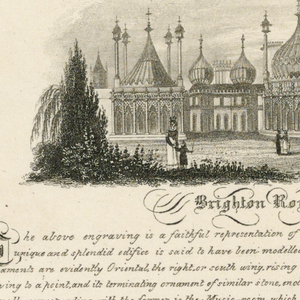 Brighton Ro
The above engraving is a faithful representation of
unique and splendid edifice is said to have been modelled
naments are evidently Oriental, the right, or south wing, rising
ving to a point, and its terminating ornament of similar stone, mo
the former is the Music room which